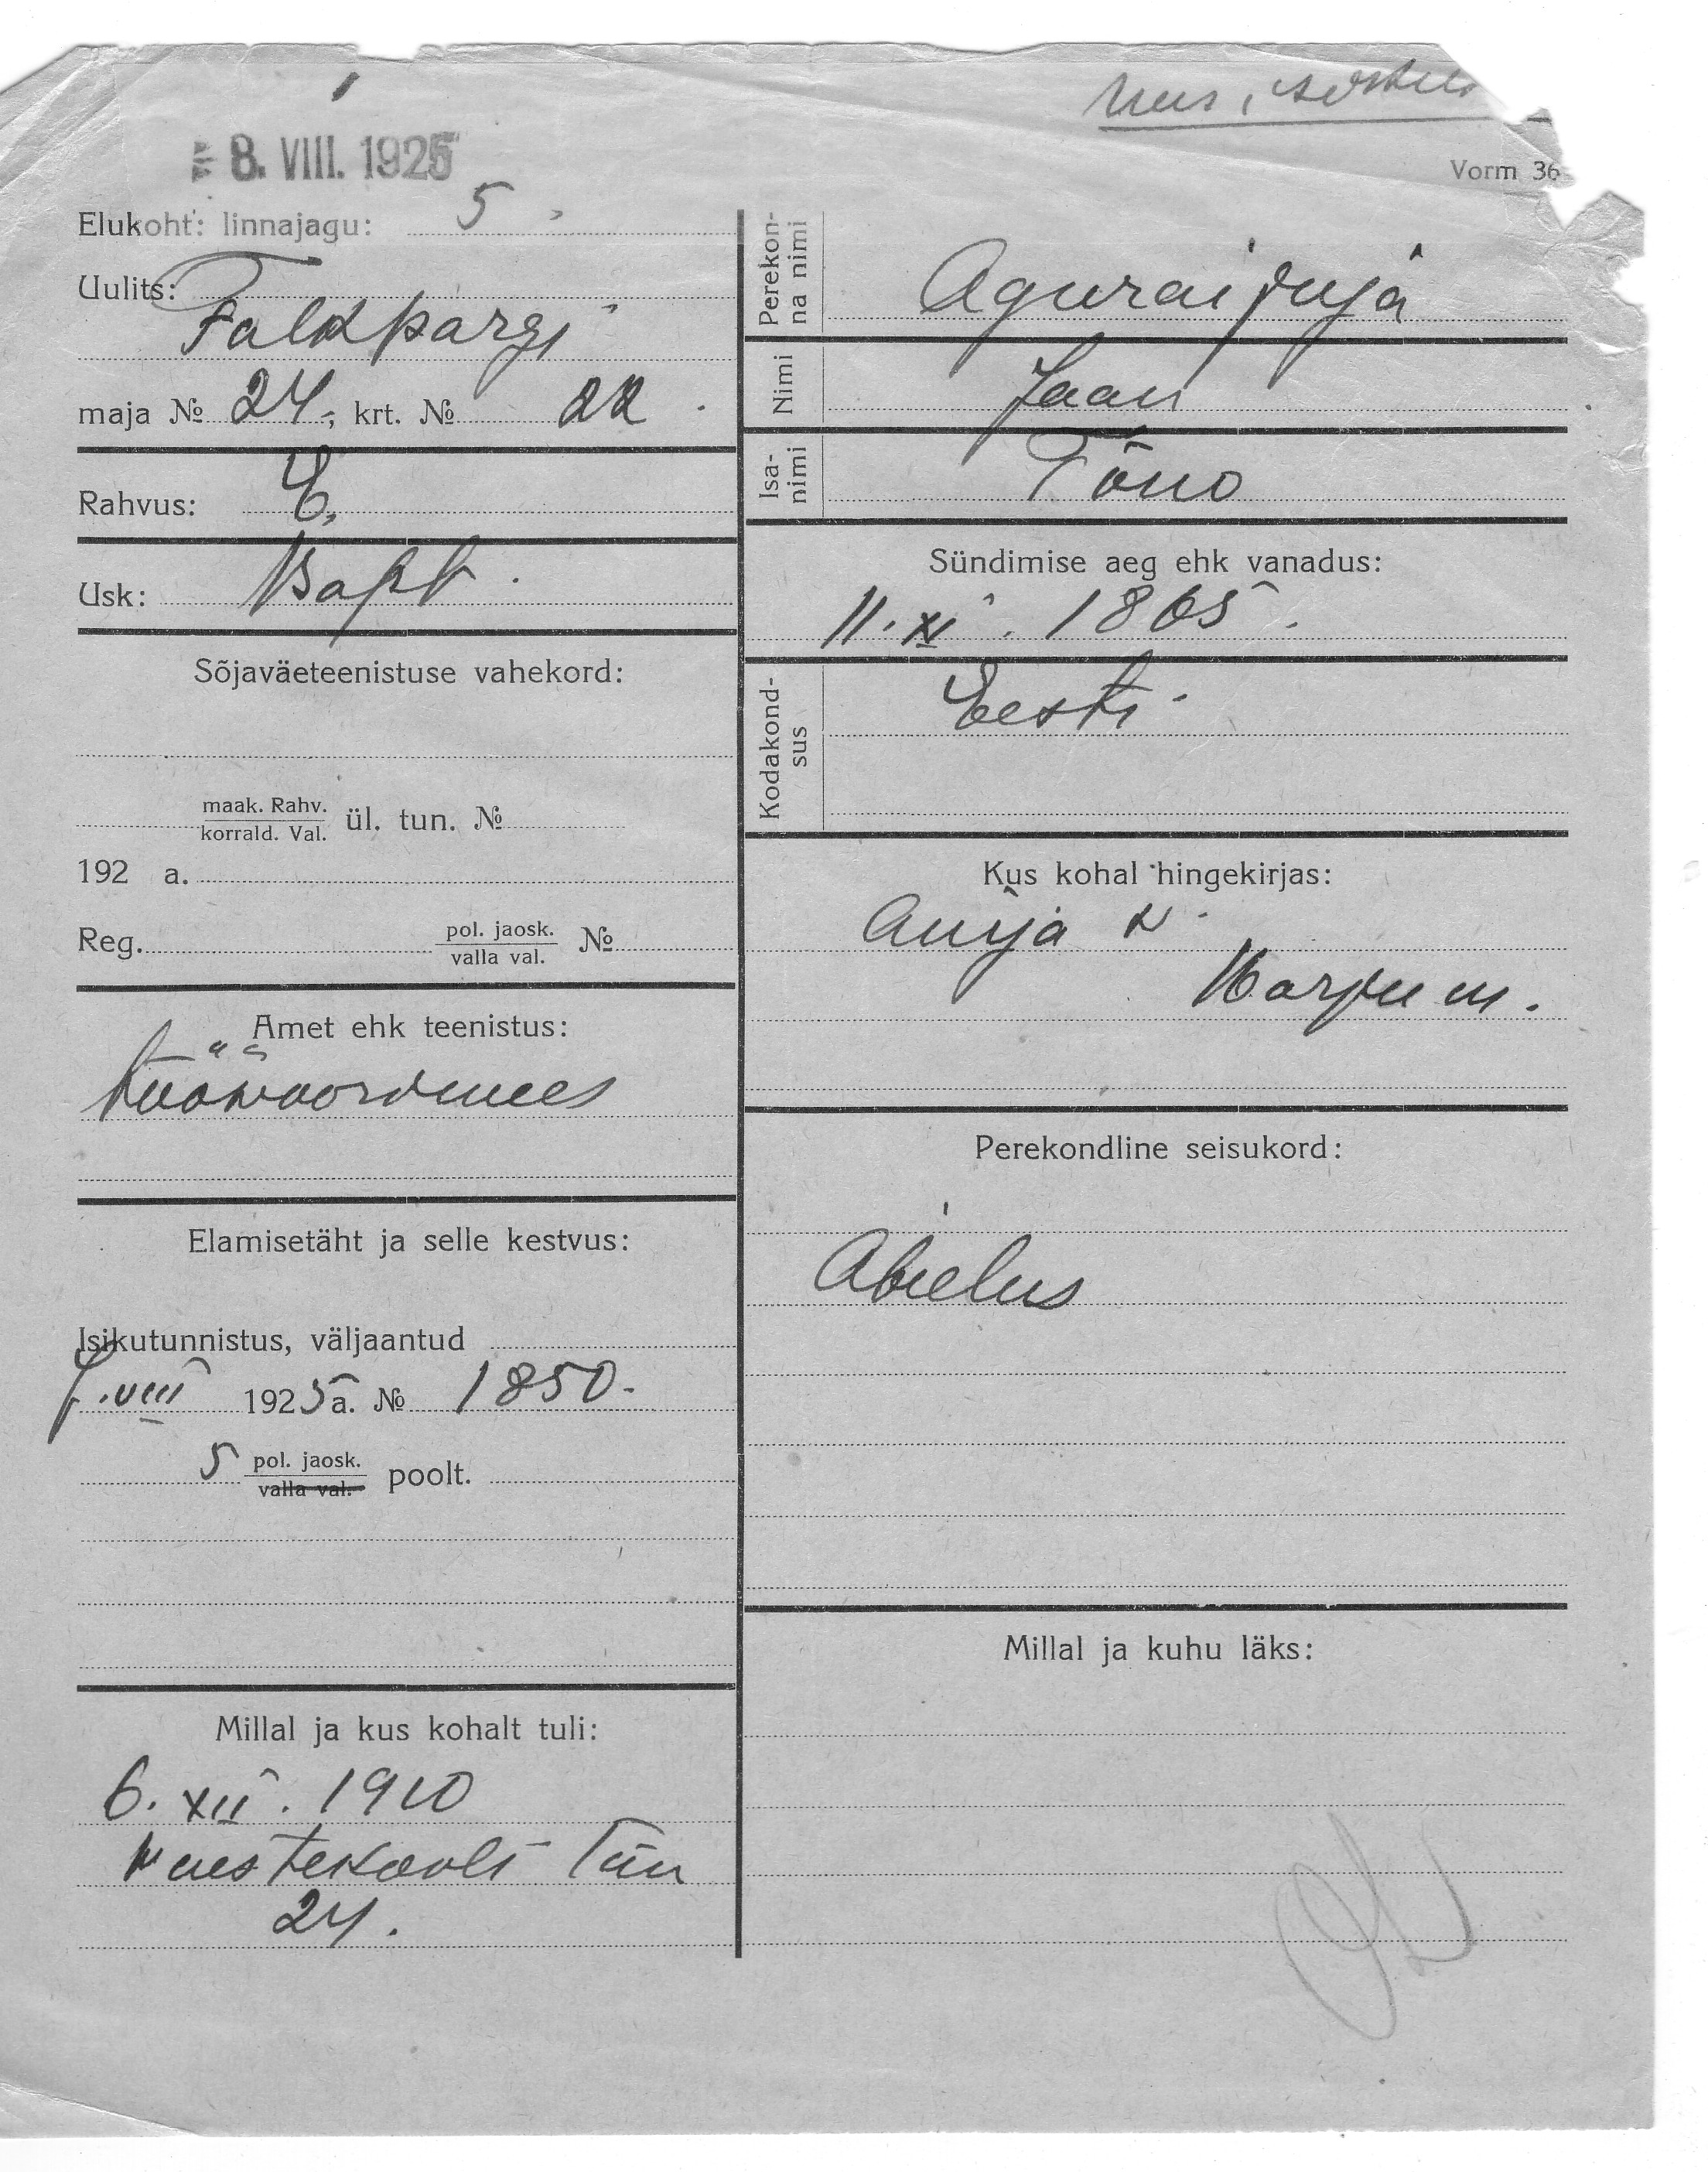 8. VIII. 1925
Vorm 36
Elukoht: linnajagu: 5
Uulits:
Falkpargi
maja № 24, krt. № 22.
Rahvus: E.
Usk: Bapt.
Sõjaväeteenistuse vahekord:
maak. Rahv.
korrald. Val. ül. tun. №
192 a.
Reg. pol. jaosk.
valla val. №
Amet ehk teenistus:
tööwoordmees
Elamisetäht ja selle kestvus:
Isikutunnistus, väljaantud
7. VIII 1925 a. № 1850.
5 pol. jaosk.
valla val. poolt.
Millal ja kus kohalt tuli:
6. XII. 1910
24.
Perekon-
na nimi
Aguraiuja
Nimi Jaan
Isa-
nimi Tõno
Sündimise aeg ehk vanadus:
11. XI. 1865.
Kodakond-
sus Eesti
Kus kohal hingekirjas:
Anija v.
Harju m.
Perekondline seisukord:
Abielus
Millal ja kuhu läks: